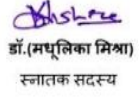 डॉ.(मधूलिका मिश्रा)
स्नातक सदस्य